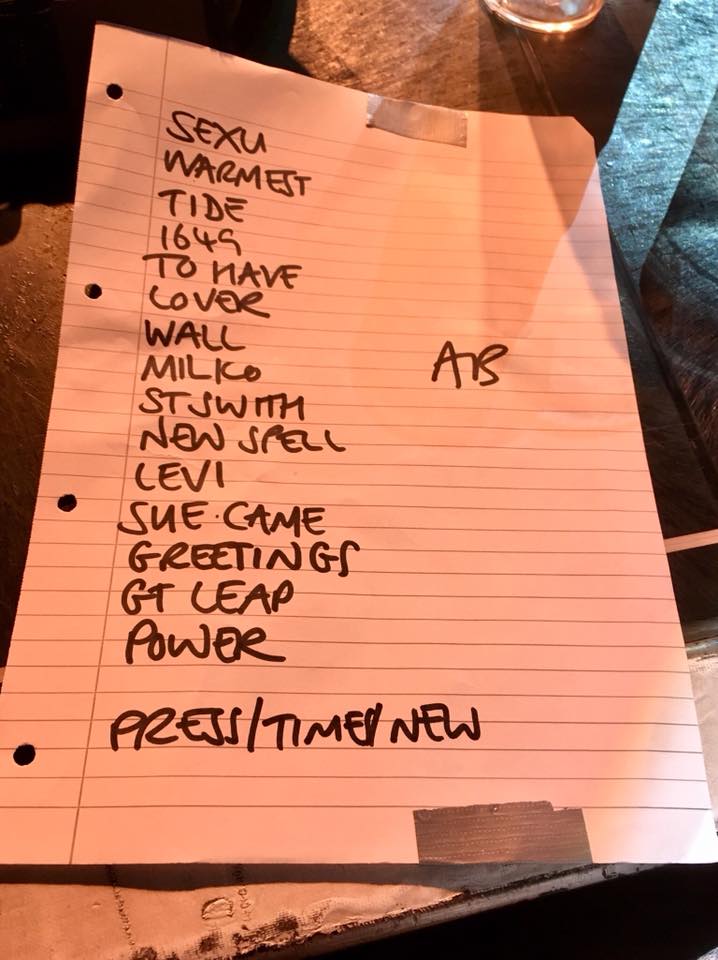 SEXU
WARMEST
TIDE
1649
TO HAVE
LOVER
WALL
MILKO
ATB
ST SWITH
NEW SPELL
LEVI
SUE·CAME
GREETINGS
GT LEAP
POWER
PRESS/TIMES/NEW